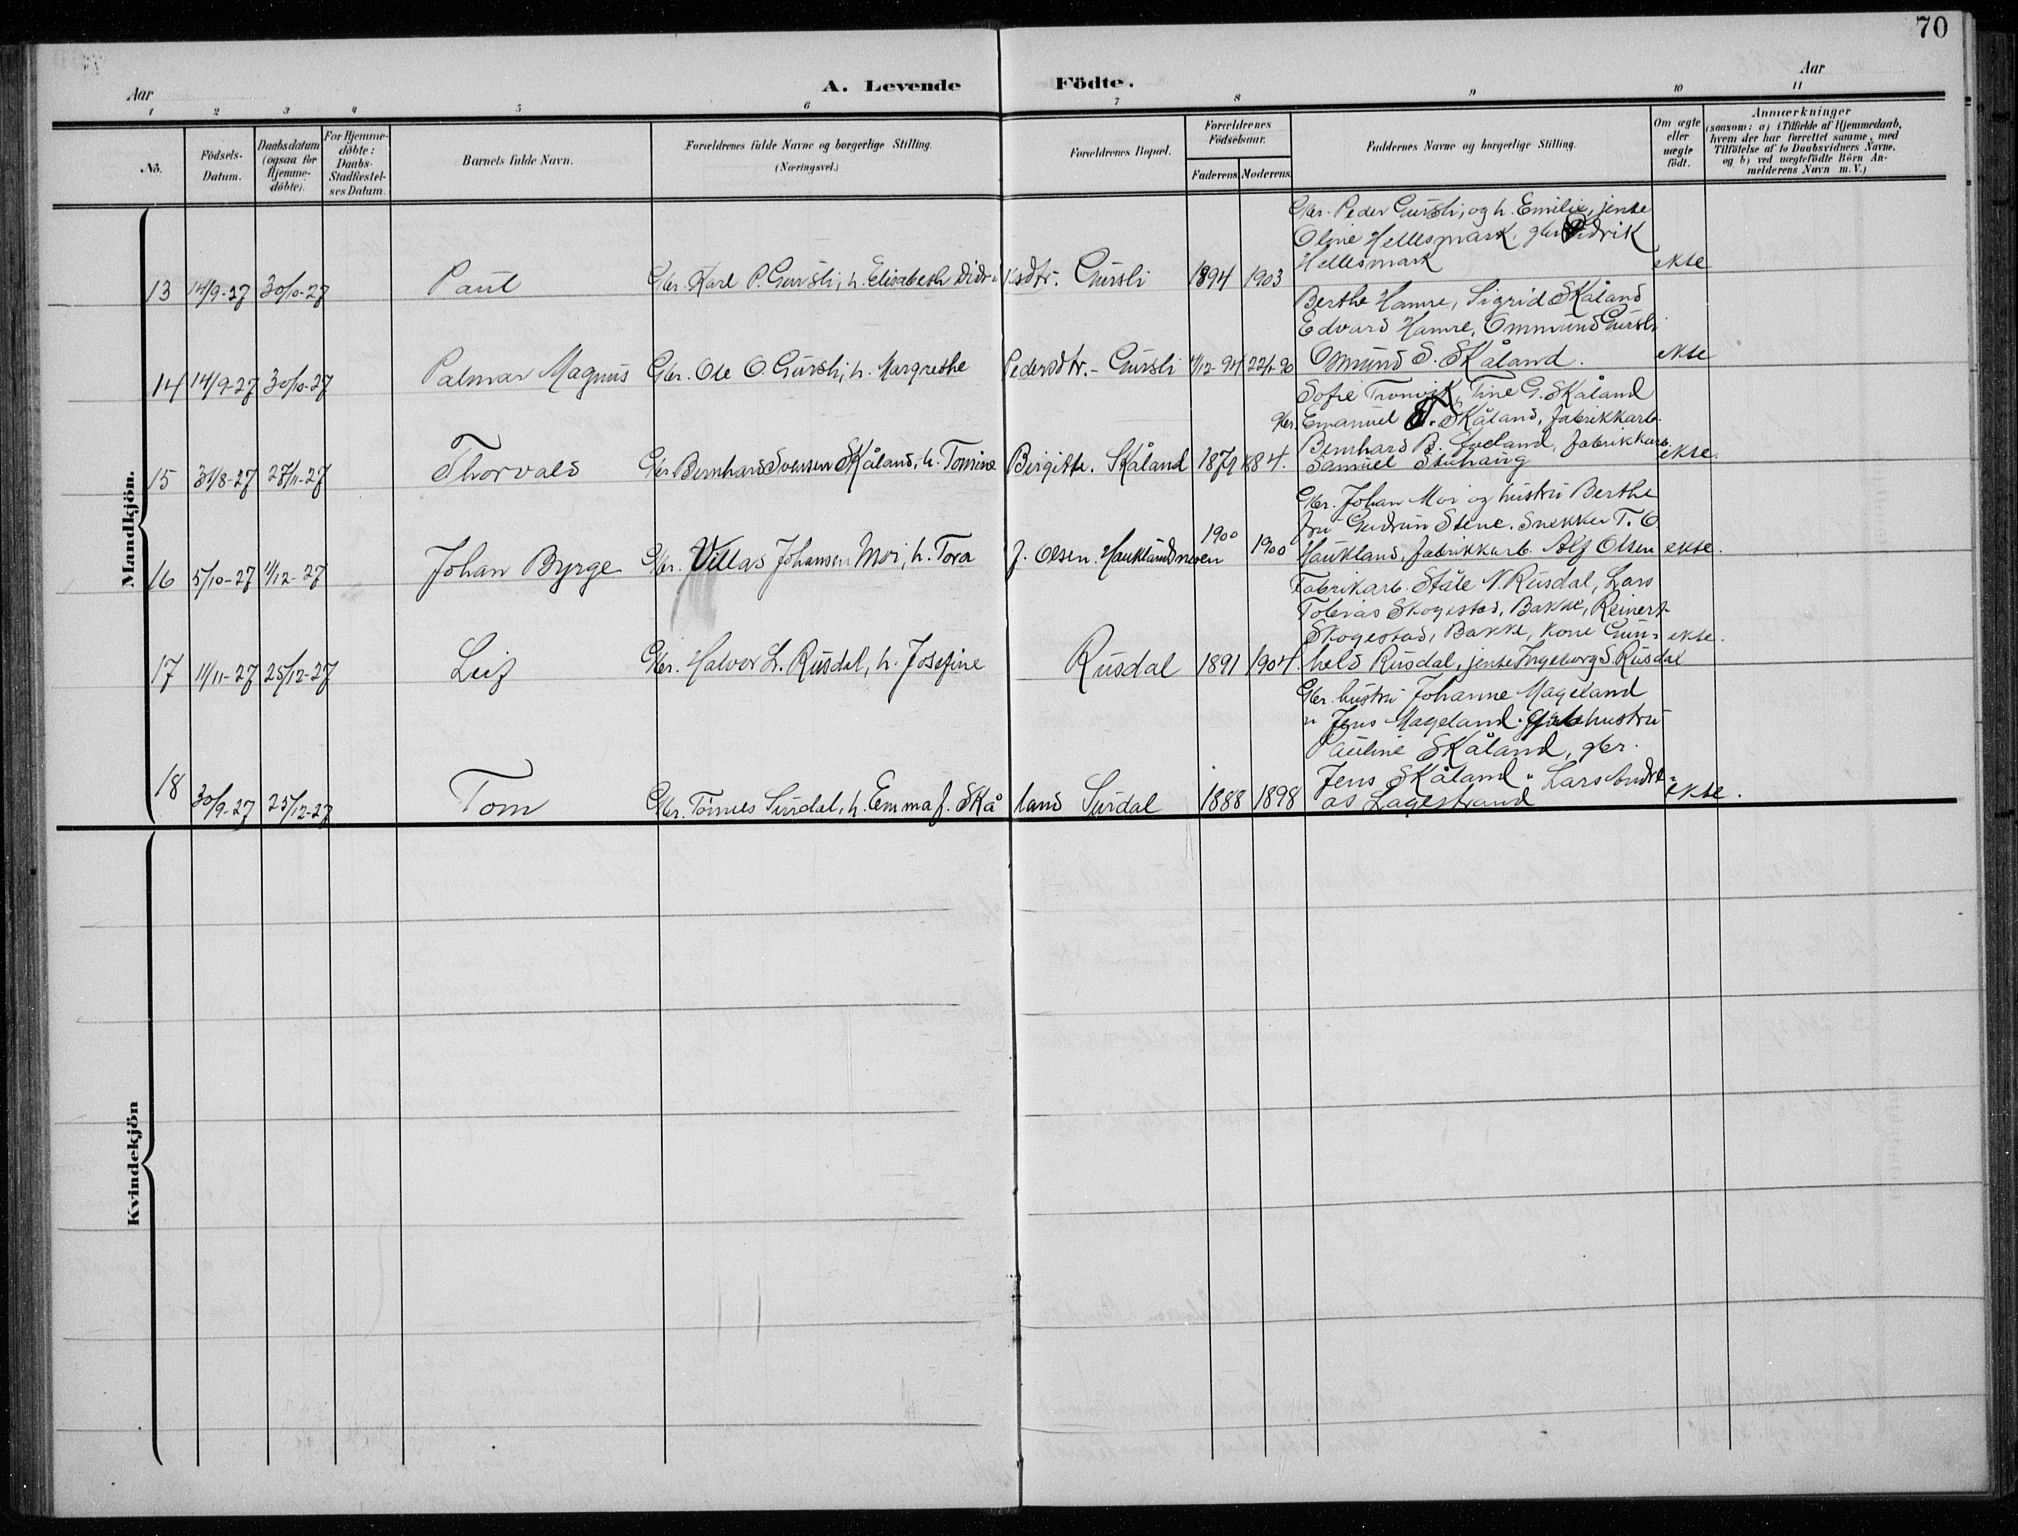 70
A. Levende Födte.
Aar
Aar
1 2 3 4 5 6 7 8 9 10 11
No.
Födsels-
Datum.
Daabsdatum
(ogsaa for
Hjemme-
döbte).
For Hjemme-
döbte:
Daabs-
Stadfæstel-
ses Datum.
Barnets fulde Navn.
Forældrenes fulde Navne og borgerlige Stilling.
(Næringsvei.)
Forældrenes Bopæl.
Forældrenes
Födselsaar.
Faderens. Moderens.
Faddernes Navne og borgerlige Stilling.
Om ægte
eller
uægte
födt.
Anmærkninger
(saasom: a) i Tilfælde af Hjemmedaab,
hvem der har forrettet samme, med
Tilföielse af to Daabsvidners Navne,
og b) ved uægtefödte Börn An-
melderens Navn m. V.)
Mandkjön.
Gbr. Peder Gursli, og h. Emilie, jente
Oline Hellesmark, gbr. Didrik
Hellesmark
13 14/9-27 30/10-27 Paul Gbr. Karl P. Gursli, h. Elisabeth Didriksdtr. Gursli 1894 1903 ekte
Berthe Hamre, Sigrid Skåland
Edvard Hamre, Ommund Gursli
Omund S. Skåland.
14 14/9-27 30/10-27 Palmar Magnus Gbr. Ole O. Gursli, h. Margrethe Pedersdtr. - Gursli 4/12-94 22/1-90 ekte
Sofie Tronvik, Tine G. Skåland
Gbr. Emanuel T. Skåland, fabrikkarb.
Bernhard B. Lueland, fabrikkarb.
Samuel Stuhaug
15 31/8-27 27/11-27 Thorvald Gbr. Bernhard Svensen Skåland, h. Tomine Birgitte. Skåland 1879 1884. ekte.
Gbr. Johan Moi og hustru Berthe
fru Gudrun Stene. Snekker T. O.
Haukland, fabrikkarb. Alf Olsen
16 5/10-27 4/12-27 Johan Byrge Gbr. Villas Johansen Moi, h. Tora f. Olsen. Hauklandsmoen 1900 1900 ekte.
Fabrikarb. Ståle N. Rusdal, Lars
Tobias Skogestad, Bakke, Reinert
Skogestad, Bakke, kone Gun-
hild Rusdal, jente Ingeborg S. Rusdal
17 11/11-27 25/12-27 Leif Gbr. Halvor L. Rusdal, h. Josefine Rusdal 1891 1904. ekte.
Gbr. hustru Johanne Mageland
" Jens Mageland. Gbr. hustru
Pauline Skåland, gbr.
Jens Skåland " Lars Andre-
as Lagestrand
18 30/9-27 25/12-27 Tom Gbr. Tönnes Surdal, h. Emma f. Skåland Surdal 1888 1898 ekte.
Kvindekjön